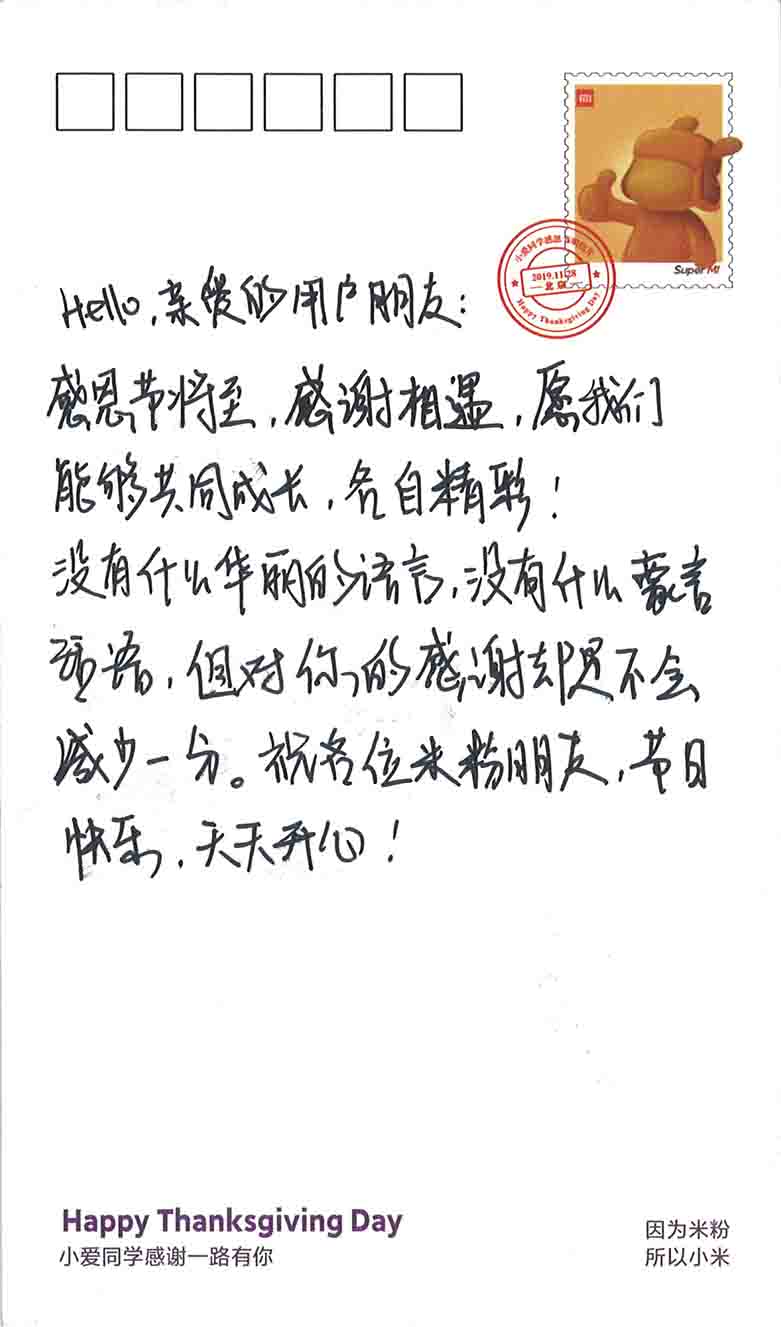 小爱同学感恩
2019.11.28
北京
Happy Thanksgiving Day
Super MI
Hello,亲爱的用户朋友:
感恩节将至,感谢相遇,愿我们
能够共同成长,各自精彩!
没有什么华丽的语言,没有什么豪言
语,但对你的感谢却是不会
减少一分。祝各位米粉朋友,节日
快乐,天天开心!
Happy Thanksgiving Day
小爱同学感谢一路有你
因为米粉
所以小米